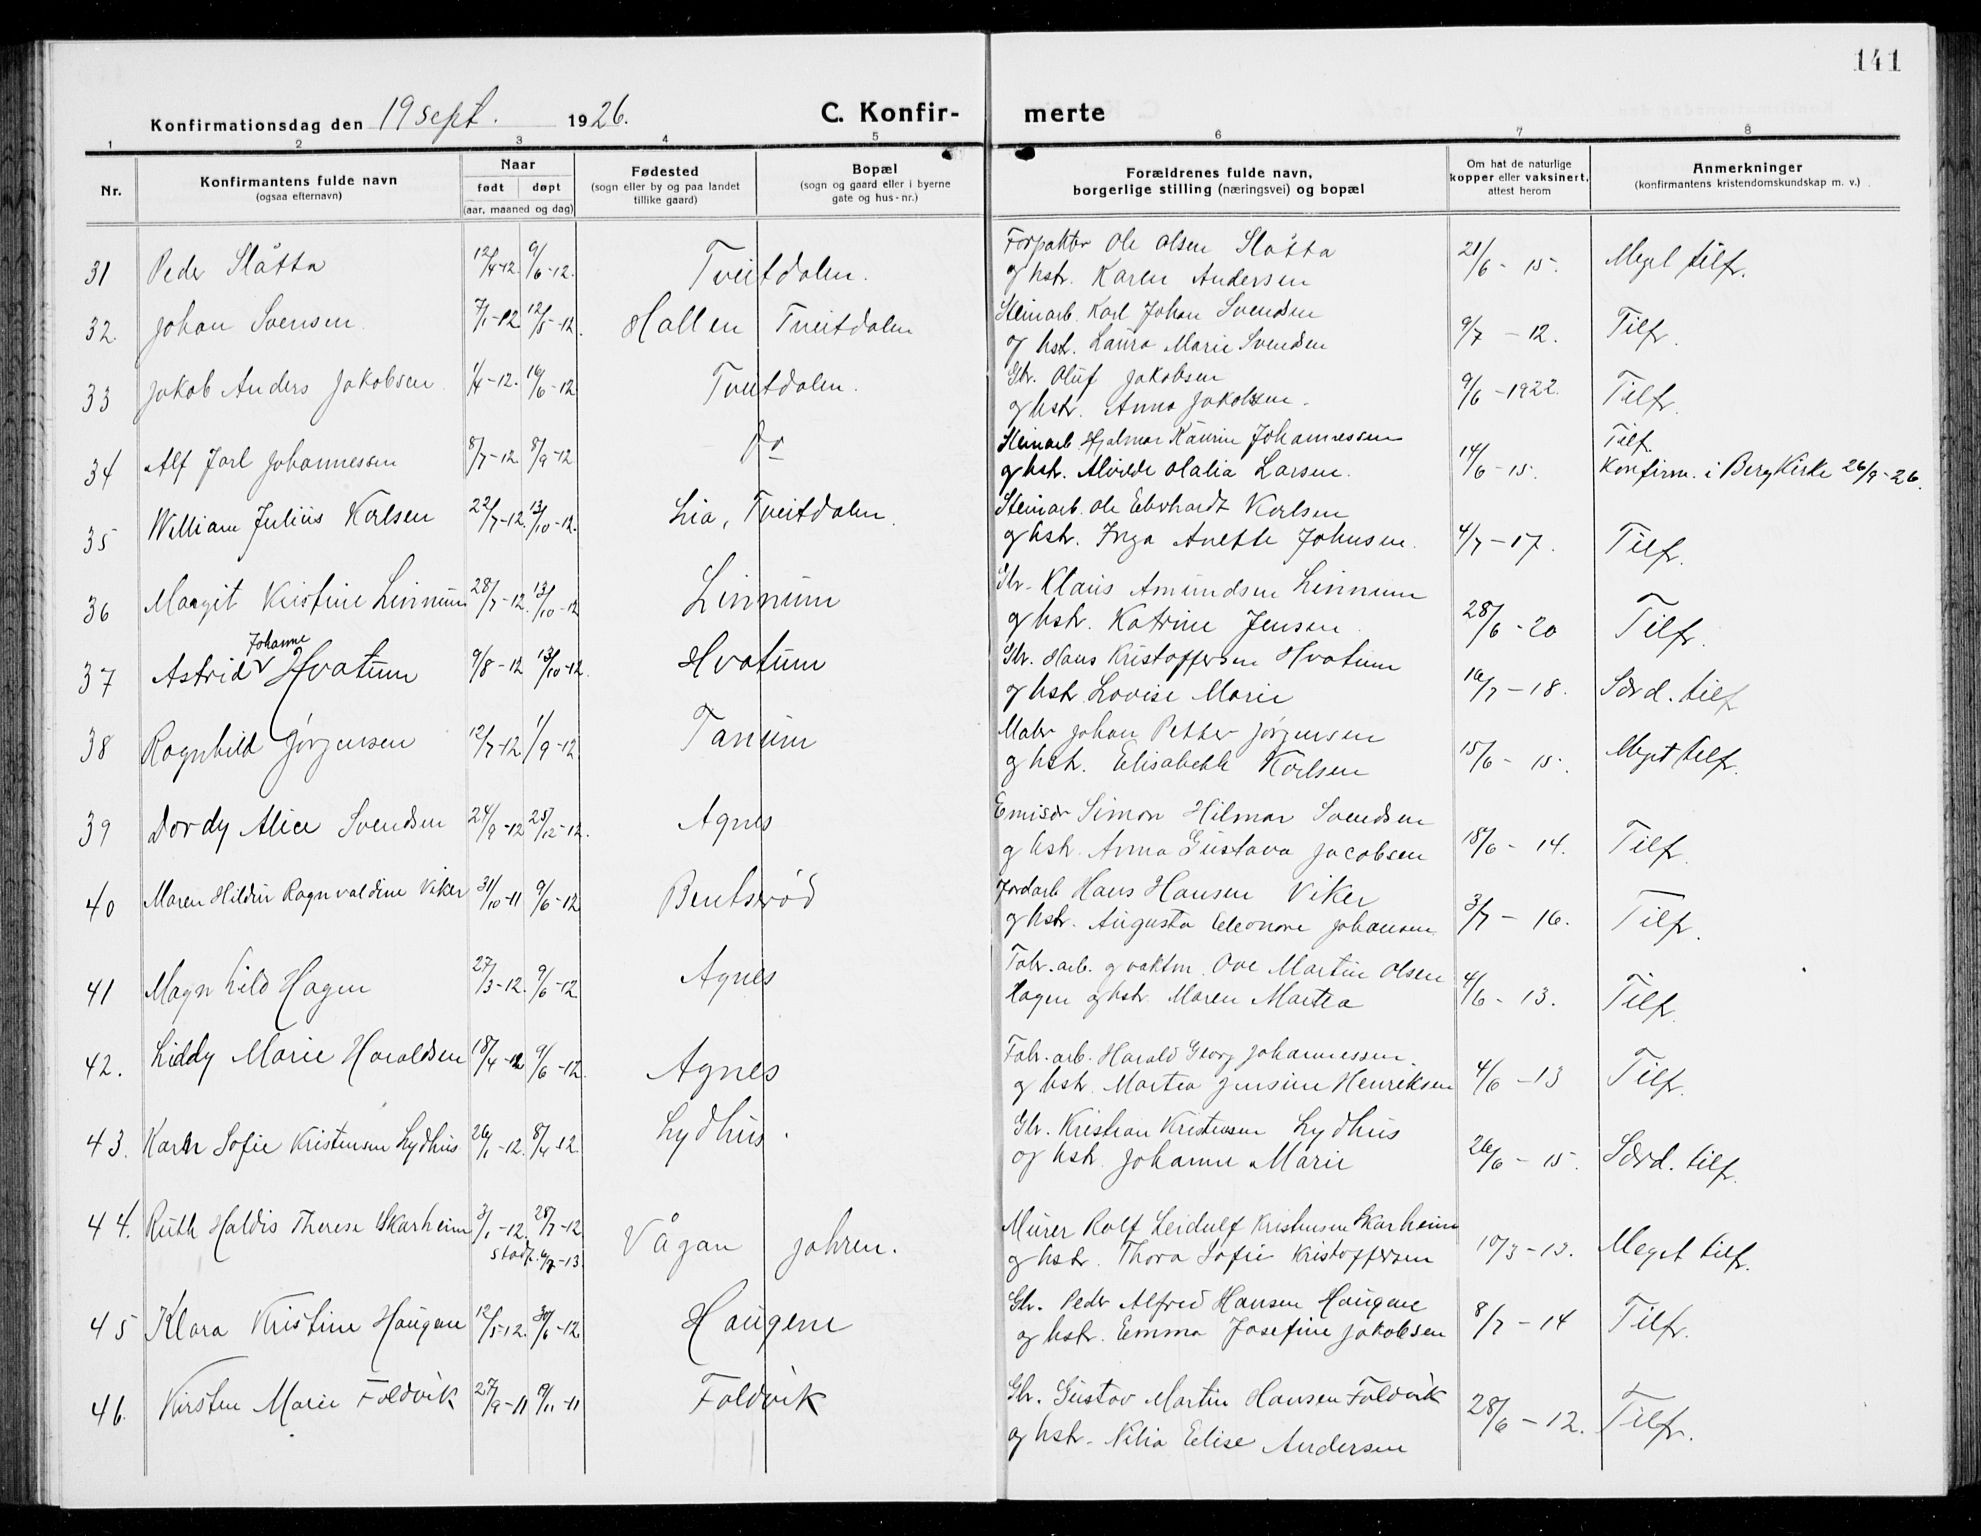 141
Konfirmationsdag den 19 sept. 1926.
C. Konfir- merte
1 2 3 4 5 6 7 8
Nr.
Konfirmantens fulde navn
(ogsaa efternavn)
Naar
født døpt
(aar, maaned og dag)
Fødested
(sogn eller by og paa landet
tillike gaard)
Bopæl
(sogn og gaard eller i byerne
gate og hus-nr.)
Forældrenes fulde navn,
borgerlige stilling (næringsvei) og bopæl
Om hat de naturlige
kopper eller vaksinert,
attest herom
Anmerkninger
(konfirmantens kristendomskundskap m. v.)
31 Peder Slåtta 12/4-12. 9/6-12. Tveitdalen. Forpakter Ole Olsen Slåtta
og hstr. Karen Andersen 21/6 - 15. Meget tilfr.
32. Johan Svensen 7/1-12 12/5-12. Hallen Tveitdalen Steinarb. Karl Johan Svendsen
og hstr. Laura Marie Svendsen 9/7 - 12. Tilfr.
33 Jakob Anders Jakobsen 1/4-12. 16/6-12 Tveitdalen. Gbr. Oluf Jakobsen
og hstr. Anna Jakobsen. 9/6 - 1922. Tilfr.
34 Alf Jarl Johannessen 8/7-12 8/9-12 Do Steinarb Hjalmar Kaurin Johannessen
og hstr. Alvilde Olalia Larsen. 14/6 - 15. Tilfr.
Konfirm. i Berg Kirke 26/9-26.
35 William Julius Karlsen 22/7-12. 13/10-12. Lia, Tveitdalen. Steinarb. Ole Eberhardt Karlsen
og hstr. Inga Anette Johnsen. 4/7 - 17. Tilfr.
36 Margit Kristine Linnum 28/7-12. 13/10-12 Linnum Gbr. Klaus Amundsen Linnum
og hstr. Katrine Jensen. 28/6 - 20 Tilfr.
37 Astrid Johanne Hvatum 9/8-12 13/10-12. Hvatum Gbr. Hans Kristoffersen Hvatum
og hstr Lovise Marie 16/7 - 18. Særd. tilf
38 Ragnhild Jørgensen 12/7-12 1/9-12. Tanum Maler Johan Petter Jørgensen
og hstr. Elisabeth Karlsen 15/6 - 15. Meget tilfr.
39 Dordy Alice Svendsen 24/9-12 25/12-12. Agnes Emisær Simon Hilmar Svendsen
og hstr. Anna Gustava Jacobsen 18/6 - 14. Tilfr.
40 Maren Hildur Ragnvaldine Viker 31/10-11 9/6-12 Bentserød Jordarb Hans Hansen Viker
og hstr. Augusta Eleonore Johansen 3/7 - 16. Tilfr.
41 Magnhild Hagen 27/3-12. 9/6-12 Agnes Fabr.-arb. og vaktm. Ove Martin Olsen
Hagen og hstr. Maren Martea 4/6 - 13. Tilfr.
42. Liddy Marie Haraldsen 18/4-12 9/6-12. Agnes Fabr.-arb. Harald Georg Johannessen.
og hstr. Martea Jensine Henriksen 4/6 - 13 Tilfr.
43. Karen Sofie Kristensen Lydhus 26/1-12. 8/4-12. Lydhus. Gbr. Kristian Kristensen Lydhus
og hstr. Johanne Marie 26/6 - 15. Særd. tilfr.
44. Ruth Haldis Therese Skarheim 3/1-12. 28/7-12
stadf. 6/7-13. Vågan Jahren. Murer Rolf Leidulf Kristensen Skarheim
og hstr. Thora Sofie Kristoffersen 10/3 - 13. Meget tilfr.
45 Klara Kristine Haugen 12/5-12. 30/6-12 Haugene Gbr. Peder Alfred Hansen Haugene
og hstr. Emma Josefine Jakobsen 8/7 - 14 Tilfr.
46. Kirsten Marie Foldvik 27/9-11 19/11-11 Foldvik Gbr. Gustav Martin Hansen Foldvik
og hstr. Nilia Elise Andersen 28/6 - 12. Tilfr.